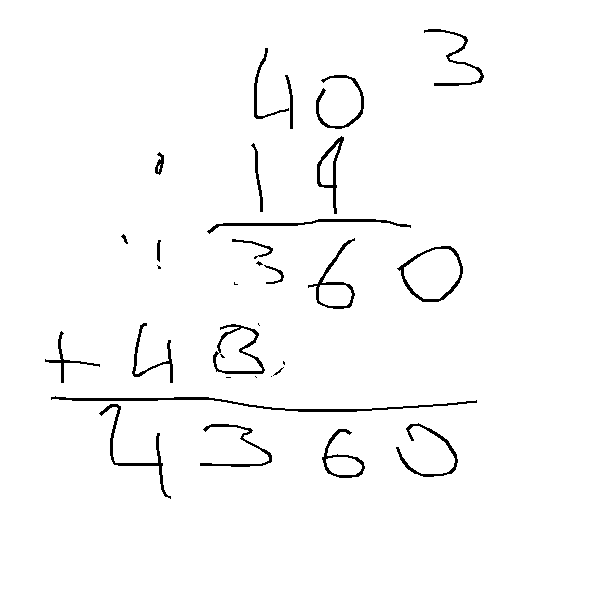 40 3
19
360
+ 48
4360